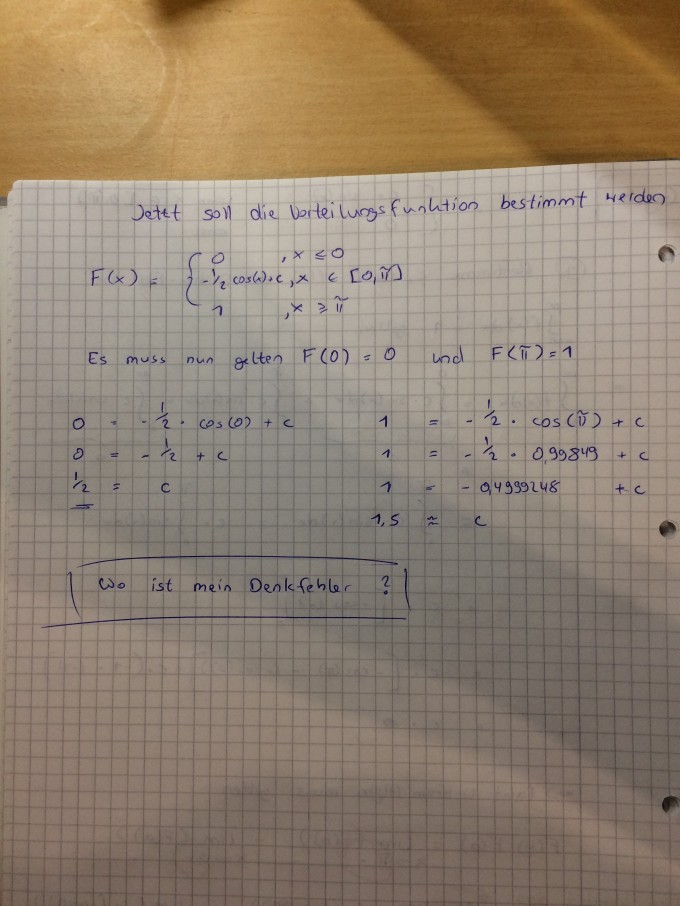 Jetzt soll die Verteilungsfunktion bestimmt werden
F(x) = { 0 , x ≤ 0
-1/2 cos(x)+c , x ∈ [0,π]
1 , x ≥ π
Es muss nun gelten F(0) = 0 und F(π) = 1
0 = -1/2 · cos(0) + c 1 = -1/2 · cos(π) + c
0 = -1/2 + c 1 = -1/2 · 0,99849 + c
1/2 = c 1 = - 0,4999248 + c
1,5 ≈ c
Wo ist mein Denkfehler ?